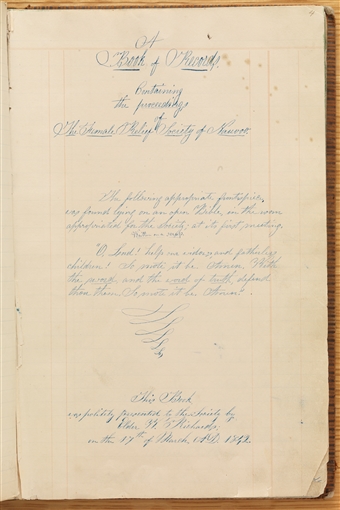 A
Book of Records.
Containing
the proceedings
of
The Female Relief Society of Nauvoo.
The following appropriate frontispiece
was found lying on an open Bible, in the room
appropriated for the Society; at its first meeting.
Written on a scrap
"O, Lord! help our widows, and fatherless
children! So mote it be. Amen. With
the sword, and the word of truth, defend
thou them. So mote it be. Amen."
This Book
was politely presented to the Society by
Elder W. Richards;
on the 17th of March, A.D. 1842.